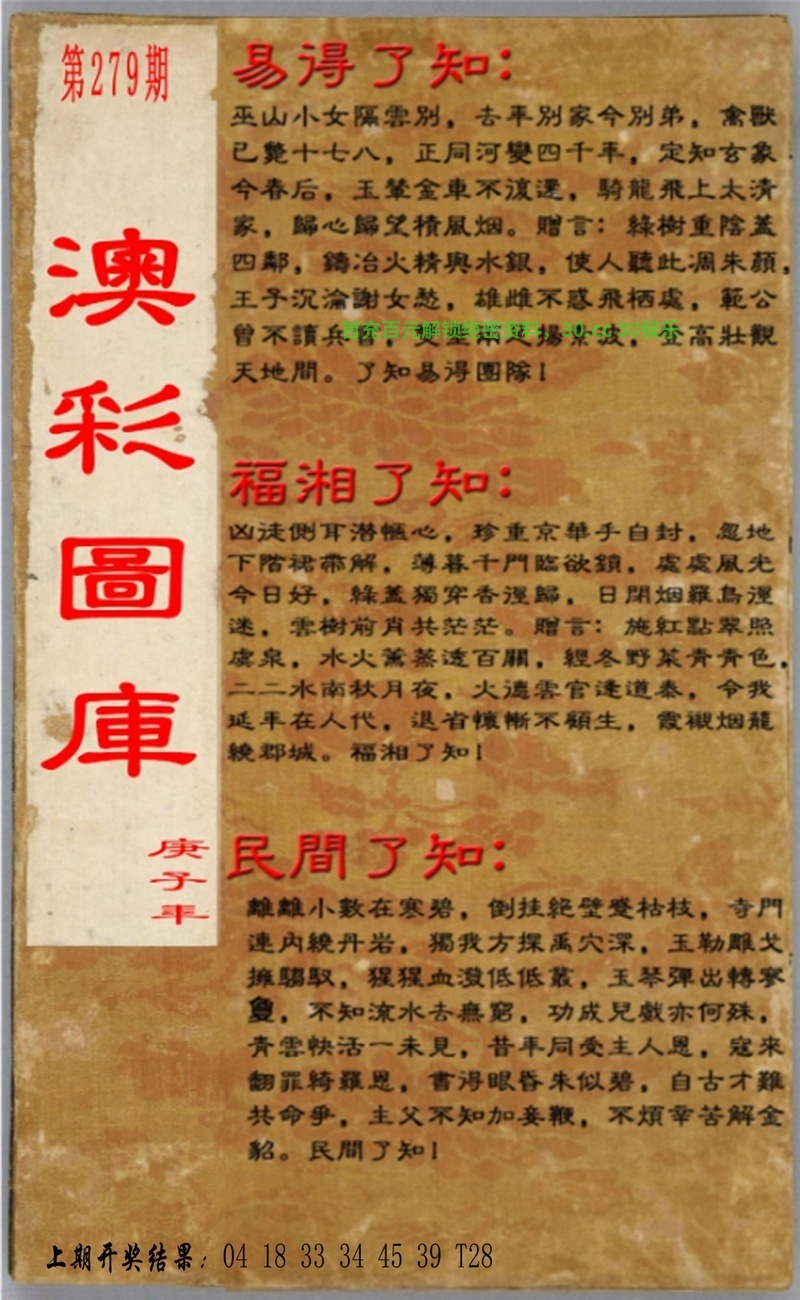 第279期
澳
彩
圖
庫
庚
子
年
易得了知：
巫山小女隔雲別，去年別家今別弟，禽獸
已斃十七八，正同河變四千年，定知玄象
今春后，玉輦金車不復還，騎龍飛上太清
家，歸心歸望積風烟。贈言：綠樹重陰蓋
四鄰，鑄冶火精與水銀，使人聽此凋朱顏，
王子沉淪謝女愁，雄雌不惑飛栖處，範公
曾不讀兵書，登高壯觀
天地間。了知易得團隊！
福湘了知：
凶徒側耳潜愜心，珍重京華手自封，忽地
下階裙帶解，薄暮千門臨欲鎖，處處風光
今日好，綠蓋獨穿香徑歸，日閉烟羅鳥徑
迷，雲樹前肖共茫茫。贈言：施紅點翠照
虞泉，水火薰蒸透百關，經冬野菜青青色，
二二水南秋月夜，火德雲官逢道泰，令我
延年在人代，退省轅慚不顧生，霞襯烟籠
繞郡城。福湘了知！
民間了知：
離離小數在寒碧，倒挂絕壁蹙枯枝，寺門
連內繞丹岩，獨我方探禹穴深，玉勒雕戈
擁騶馭，猩猩血潑低低叢，玉琴彈出轉寥
夐，不知流水去無窮，功成兒戲亦何殊，
青雲快活一未見，昔年同受主人恩，寇來
翻罪綺羅恩，書得眼昏朱似碧，自古才難
共命爭，主父不知加妾鞭，不煩辛苦解金
貂。民間了知！
上期开奖结果：04 18 33 34 45 39 T28